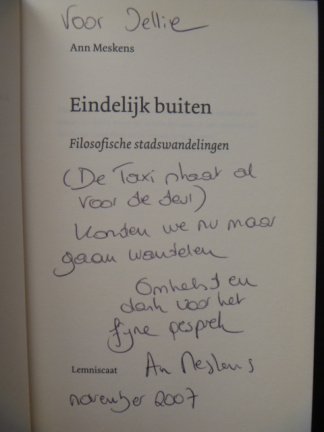 Voor Jellie
Ann Meskens
Eindelijk buiten
Filosofische stadswandelingen
(De Taxi staat al
voor de deur)
Konden we nu maar
gaan wandelen
Omhelsd en
dank voor het
fijne gesprek
Lemniscaat An Meskens
november 2007